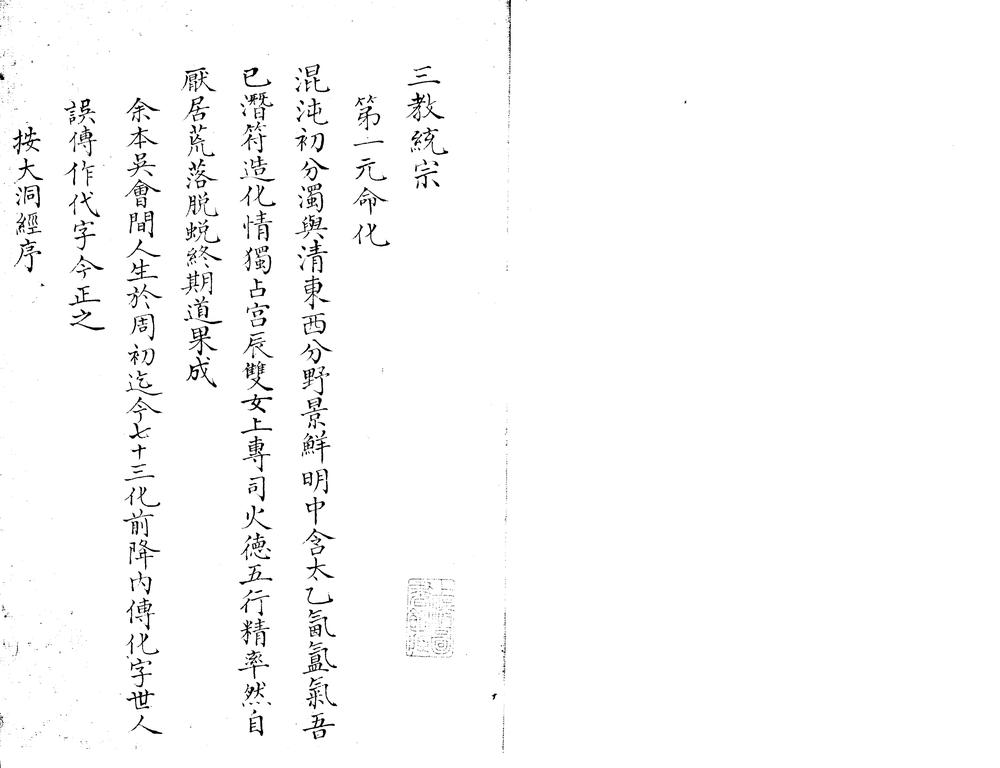 三教統宗
第一元命化
混沌初分濁與清東西分野景鮮明中含太乙氤氳氣吾
已潛符造化情獨占宮辰雙女上專司火德五行精率然自
厭居荒落脱蛻終期道果成
余本吳會間人生於周初迄今七十三化前降內傳化字世人
誤傳作代字今正之
按大洞經序